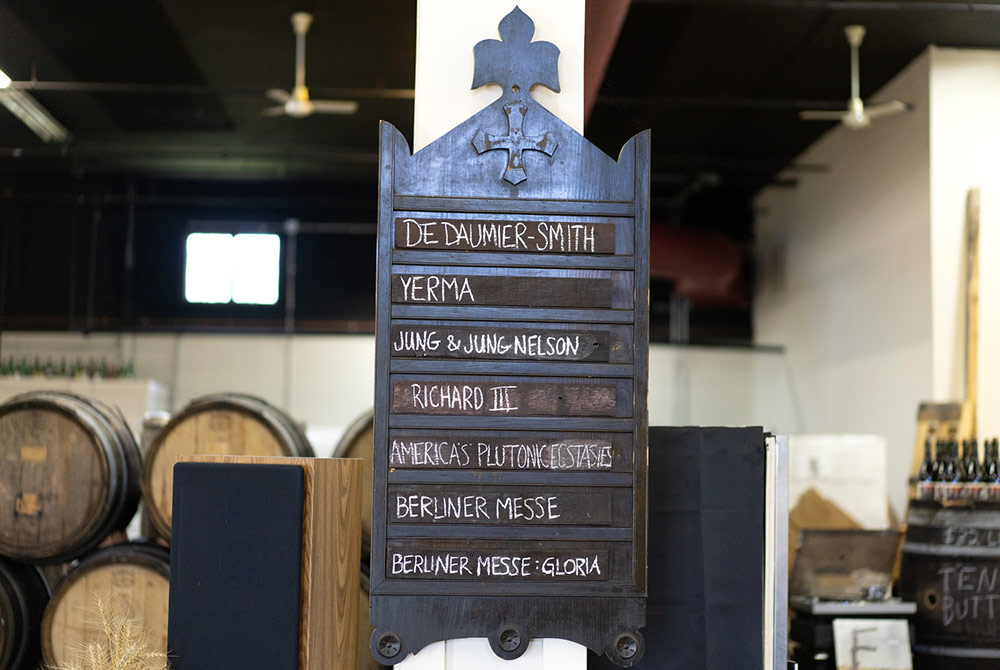 DE DAUMIER-SMITH
YERMA
JUNG & JUNG NELSON
RICHARD III
AMERICA'S PLUTONIC ECSTASIES
BERLINER MESSE
BERLINER MESSE : GLORIA
TEN
BUTT
E